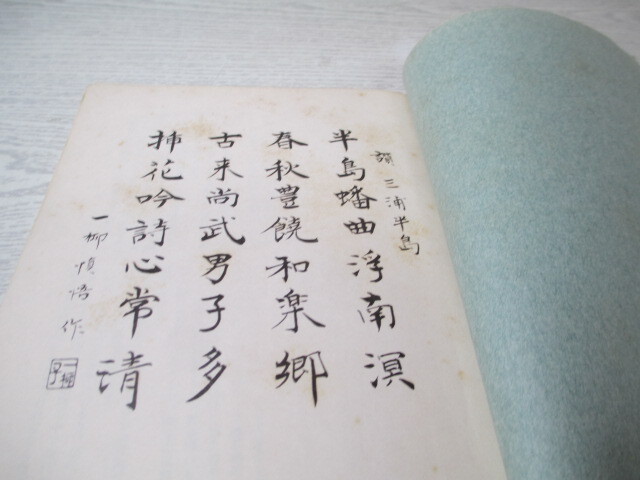 三浦半島
半島蟠曲浮南溟
春秋豊饒和楽郷
古来尚武男子多
挿花吟詩心常清
一柳慎悟作